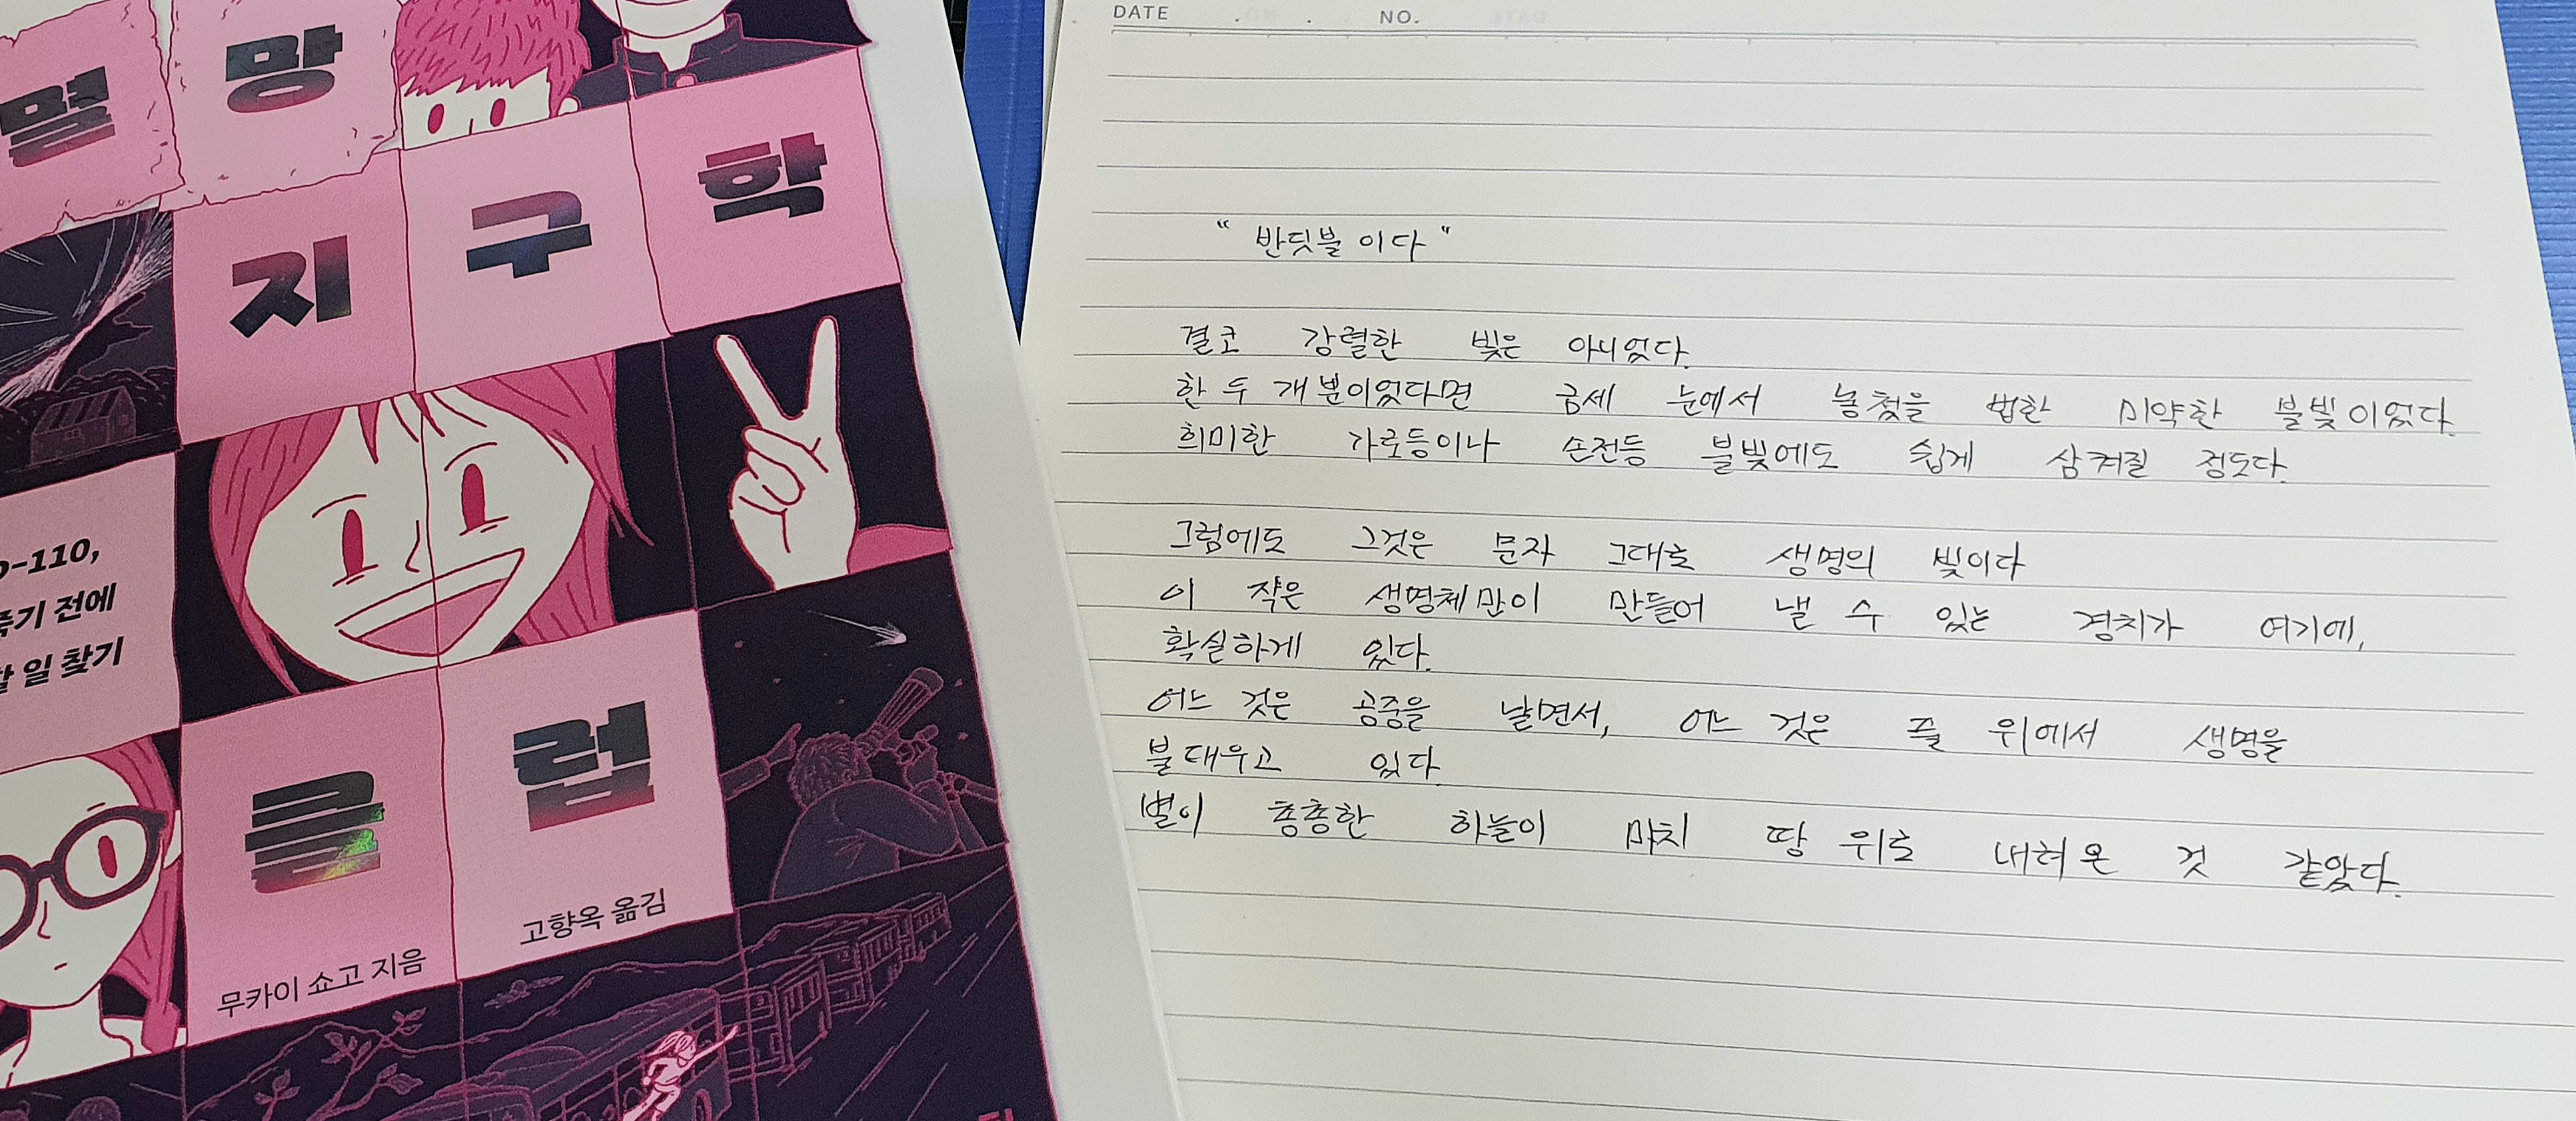 멸망
지구학
D-110,
죽기 전에
할 일 찾기
클럽
무카이 쇼고 지음
고향옥 옮김
DATE . . NO.
" 반딧불 이다 "
결코 강렬한 빛은 아니었다.
한 두 개뿐이었다면 금세 눈에서 놓쳤을 법한 미약한 불빛이었다.
희미한 가로등이나 손전등 불빛에도 쉽게 삼켜질 정도다.
그럼에도 그것은 문자 그대로 생명의 빛이다
이 작은 생명체만이 만들어 낼 수 있는 경치가 여기에,
확실하게 있다.
어느 것은 공중을 날면서, 어느 것은 풀 위에서 생명을
불태우고 있다.
별이 총총한 하늘이 마치 땅 위로 내려온 것 같았다.